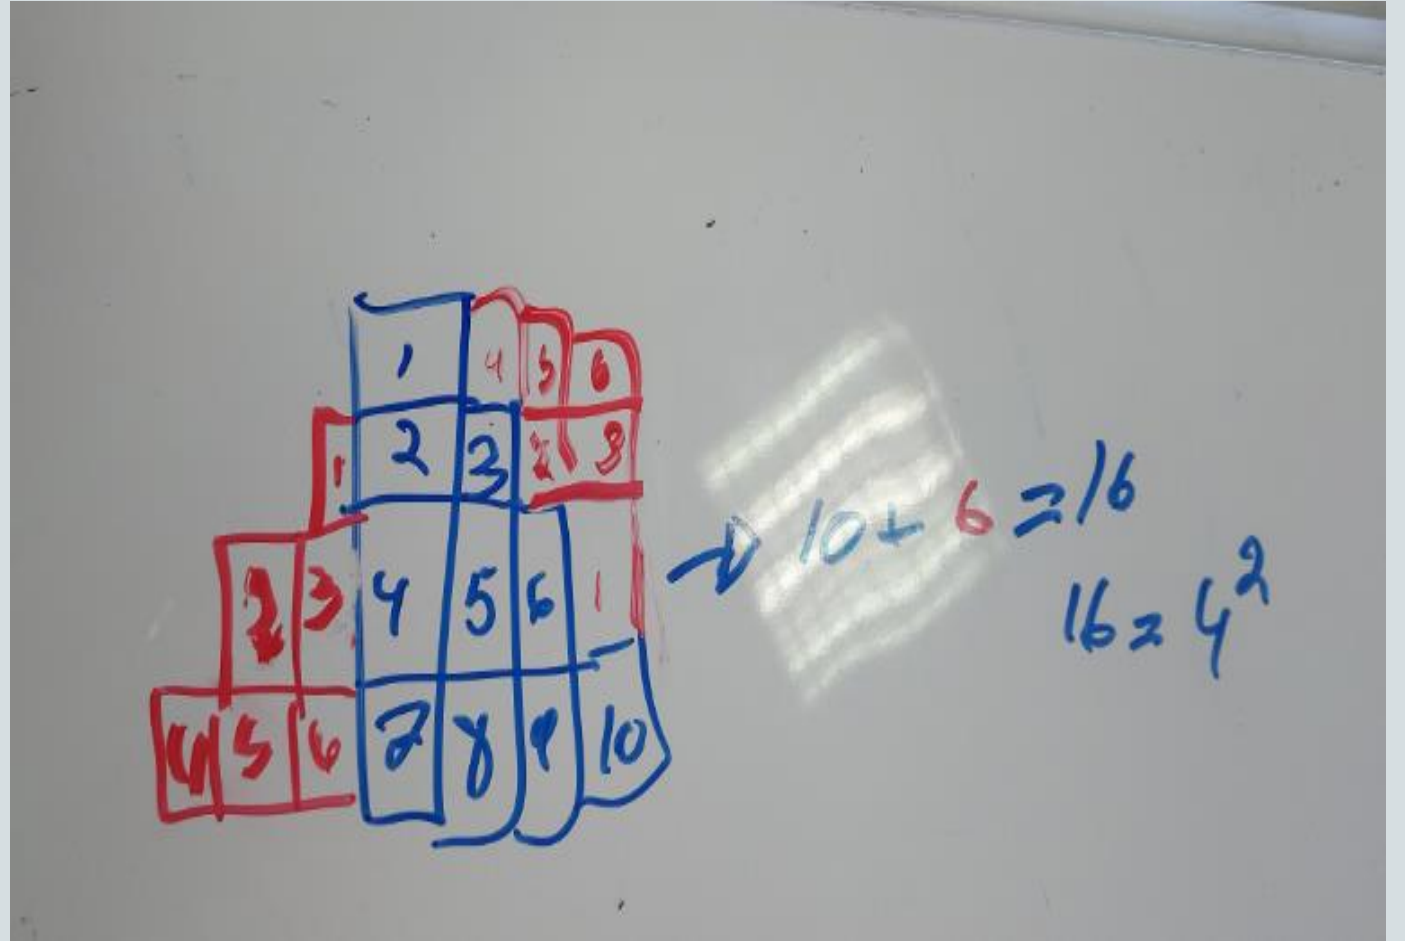 1 4 5 6
1 2 3 2 3
2 3 4 5 6 1
4 5 6 7 8 9 10
10 + 6 = 16
16 = 4²